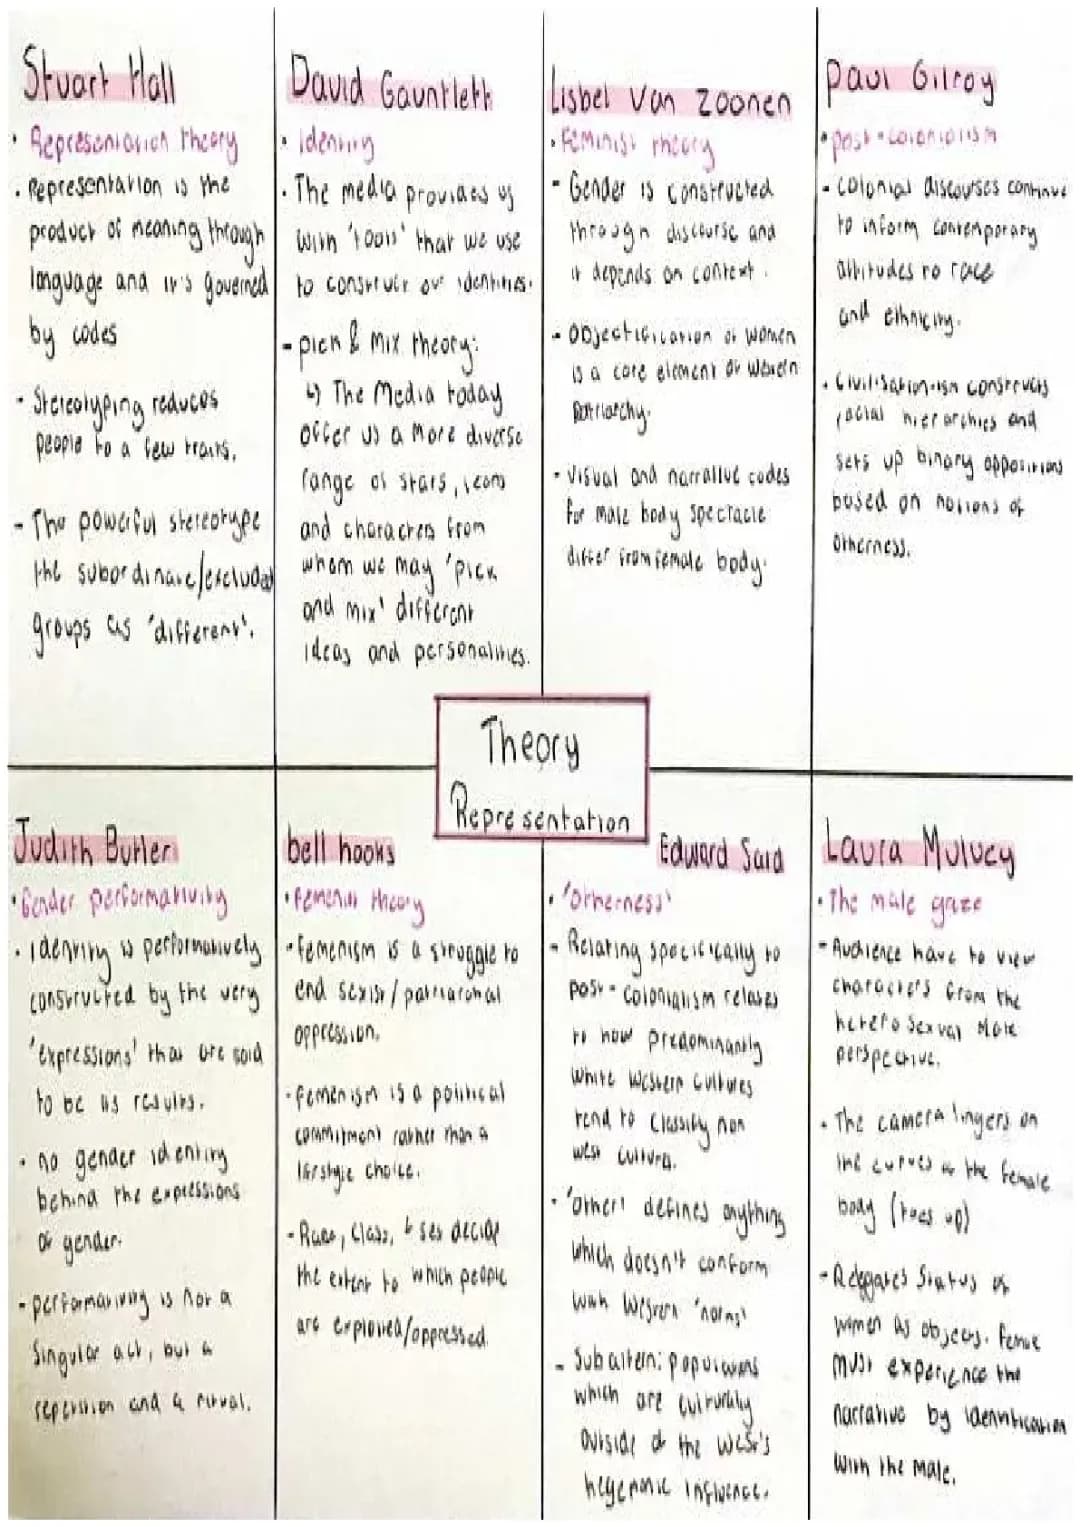 Stuart Hall
• Representation theory
• Representation is the
product of meaning through
language and it's governed
by codes
• Stereotyping reduces
people to a few traits.
- The powerful stereotype
the subordinate/excluded
groups as 'different'.
David Gauntleth
• identity
• The media provides us
with 'tools' that we use
to construct our identities.
- pick & mix theory:
↳ The Media today
offer us a more diverse
range of stars, icons
and characters from
whom we may 'pick
and mix' different
ideas and personalities.
Lisbel Van Zoonen
• Feminist theory
- Gender is constructed
through discourse and
it depends on context.
- Objectification of women
is a core element of western
Patriarchy.
- visual and narrative codes
for male body spectacle
differ from female body.
Paul Gilroy
• post-colonialism
- colonial discourses continue
to inform contemporary
attitudes to race
and ethnicity.
• Civilisationism constructs
racial hierarchies and
sets up binary oppositions
based on notions of
otherness.
Theory
Representation
Judith Butler
• Gender performativity
• identity is performatively
constructed by the very
'expressions' that are said
to be its results.
• no gender identity
behind the expressions
of gender.
- performativity is not a
singular act, but a
repetition and a ritual.
bell hooks
• Femenist theory
- femenism is a struggle to
end sexist/patriarchal
oppression.
- femenism is a political
commitment rather than a
lifestyle choice.
- Race, Class, & sex decide
the extent to which people
are exploited/oppressed
Edward Said
• 'otherness'
- Relating specifically to
post-colonialism relates
to how predominantly
white western cultures
tend to classify non
west culture.
• 'other' defines anything
which doesn't conform
with Western 'norms'
- Subaltern: populations
which are culturally
outside of the West's
hegemonic influence.
Laura Mulvey
• The male gaze
- Audience have to view
characters from the
heterosexual male
perspective.
• The camera lingers on
the curves of the female
body (toes up)
- Relegates Status of
women as objects.
must experience the
narrative by identification
with the male.